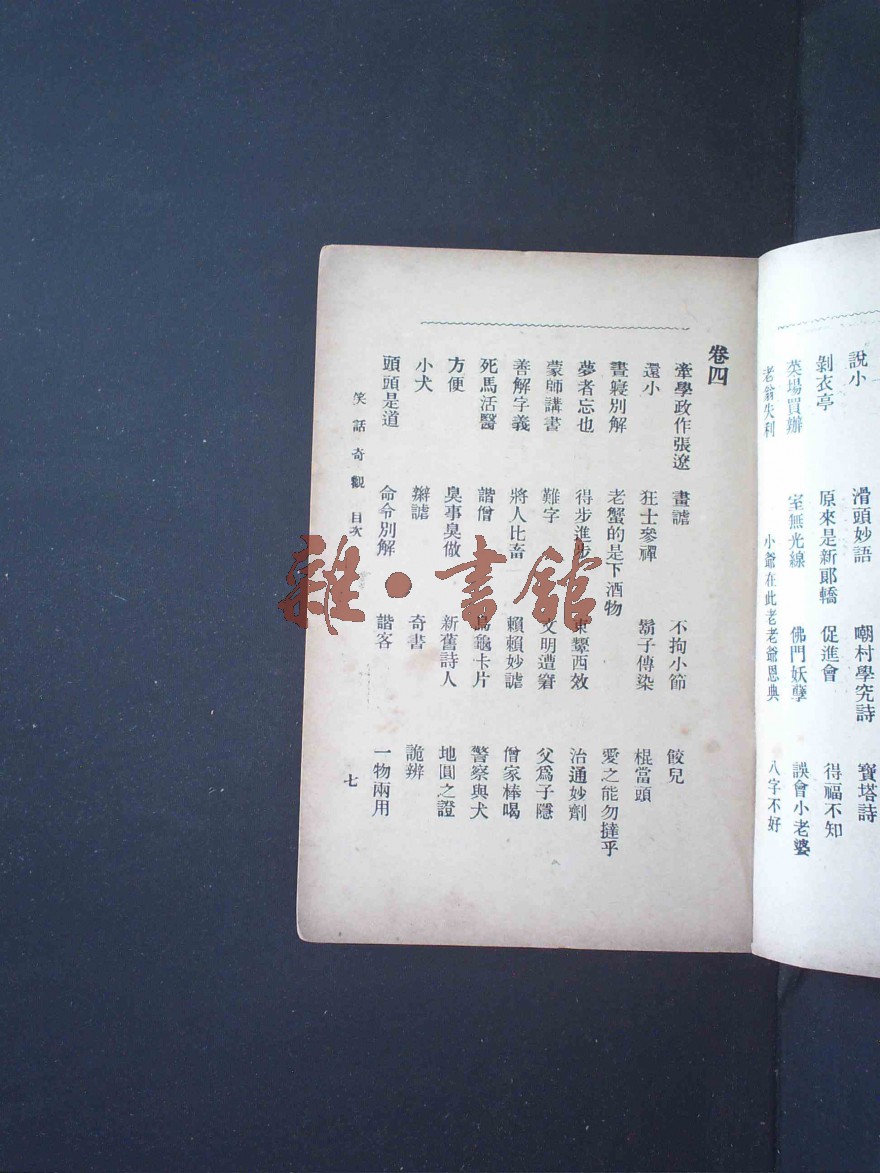 說小 滑頭妙語 嘲村學究詩 寶塔詩
剝衣亭 原來是新郞轎 促進會 得福不知
菜場買辦 室無光線 佛門妖孽 誤會小老婆
老翁失利 小爺在此老老爺恩典 八字不好
卷四
牽學政作張遼 畫謔 不拘小節 餃兒
還小 狂士參禪 鬍子傳染 棍當頭
晝寢別解 老蟹的是下酒物 愛之能勿撻乎
夢者忘也 得步進步 東顰西效 治通妙劑
蒙師講書 難字 文明遭窘 父爲子隱
善解字義 將人比畜 賴賴妙謔 僧家棒喝
死馬活醫 諧僧 烏龜卡片 警察與犬
方便 臭事臭做 新舊詩人 地圓之證
小犬 辮謔 奇書 詭辨
頭頭是道 命令別解 諧客 一物兩用
笑話奇觀 目次 七
雜·書館